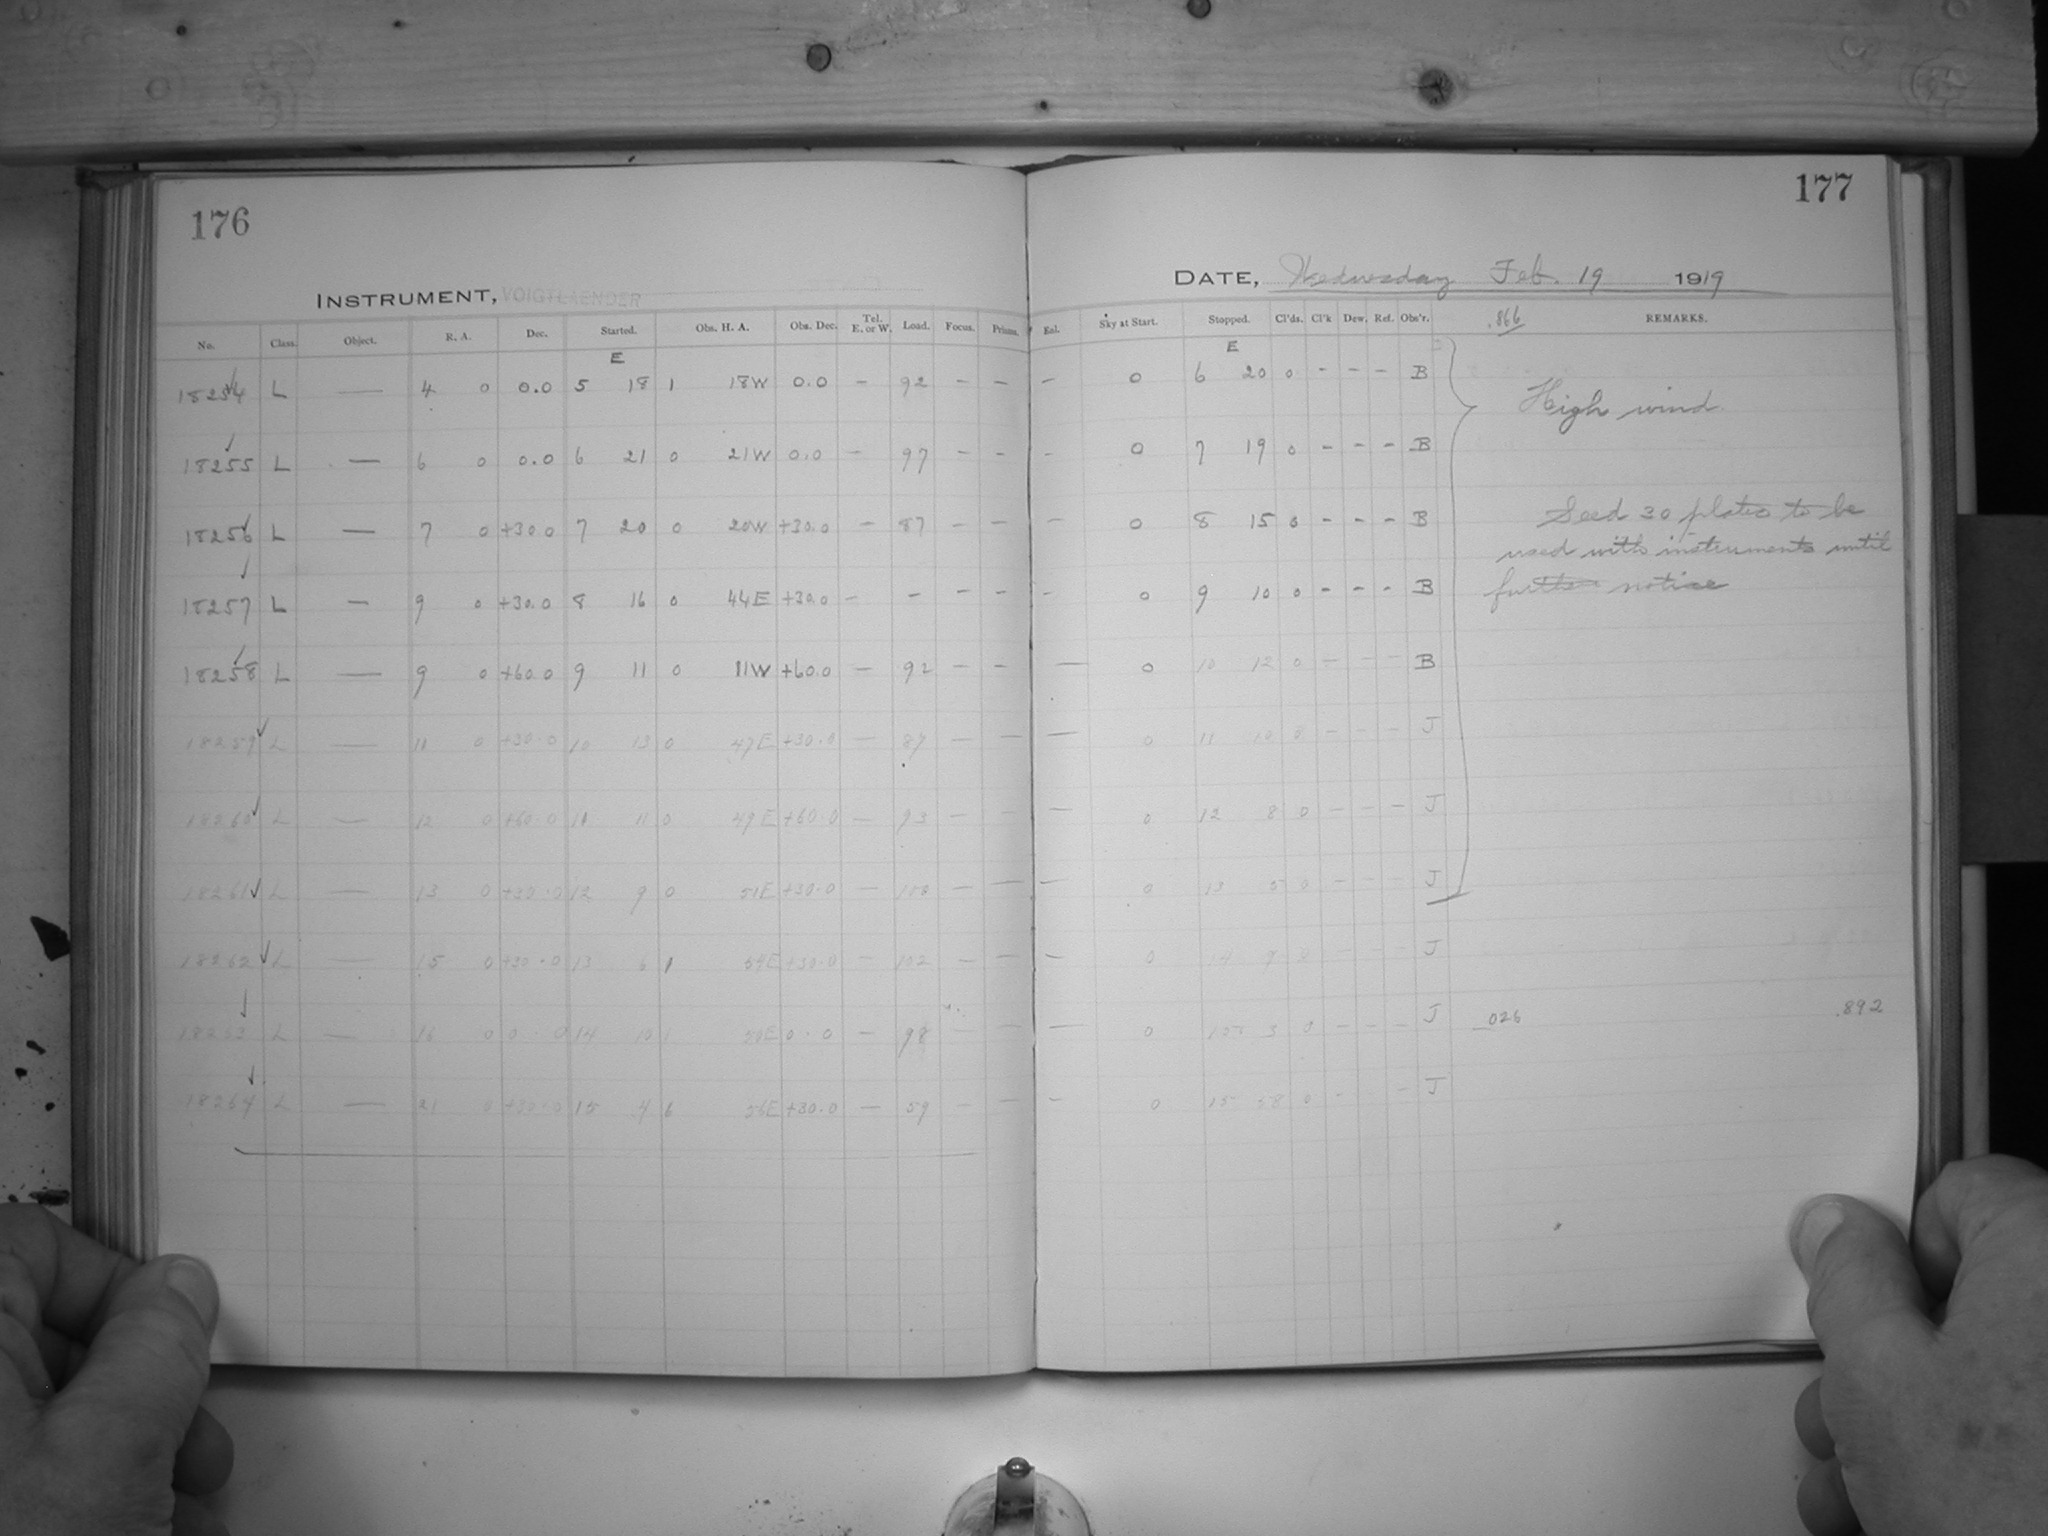 176
177
INSTRUMENT, VOIGTLAENDER
DATE, Wednesday Feb. 19 1919
No. Class. Object. R. A. Dec. Started. Obs. H. A. Obs. Dec. Tel. E. or W. Load. Focus. Prisms. Exl. Sky at Start. Stopped. Cl'ds. Cl'k Dew. Ref. Obs'r. .866 REMARKS.
E E
18254 L — 4 0 0.0 5 18 1 18W 0.0 – 92 – – – 0 6 20 0 – – – B
High wind.
18255 L — 6 0 0.0 6 21 0 21W 0.0 – 97 – – – 0 7 19 0 – – – B
18256 L — 7 0 +30.0 7 20 0 20W +30.0 – 87 – – – 0 8 15 0 – – – B
Seed 30 plates to be
used with instruments until
further notice
18257 L — 9 0 +30.0 8 16 0 44E +30.0 – – – – – 0 9 10 0 – – – B
18258 L — 9 0 +60.0 9 11 0 11W +60.0 – 92 – – – 0 10 12 0 – – – B
18259 L — 11 0 +30.0 10 13 0 47E +30.0 – 87 – – – 0 11 10 0 – – – J
18260 L — 12 0 +60.0 11 11 0 49E +60.0 – 93 – – – 0 12 8 0 – – – J
18261 L — 13 0 +30.0 12 9 0 51E +30.0 – – – – 0 13 5 0 – – – J
18262 L — 15 0 +30.0 13 6 1 54E +30.0 – 102 – – – 0 14 9 0 – – – J
18263 L — 16 0 0.0 14 10 1 50E 0.0 – 98 – – – 0 3 0 – – – J .026 .892
18264 L — 21 0 +30.0 15 4 6 56E +30.0 – 59 – – – 0 15 58 0 – – J